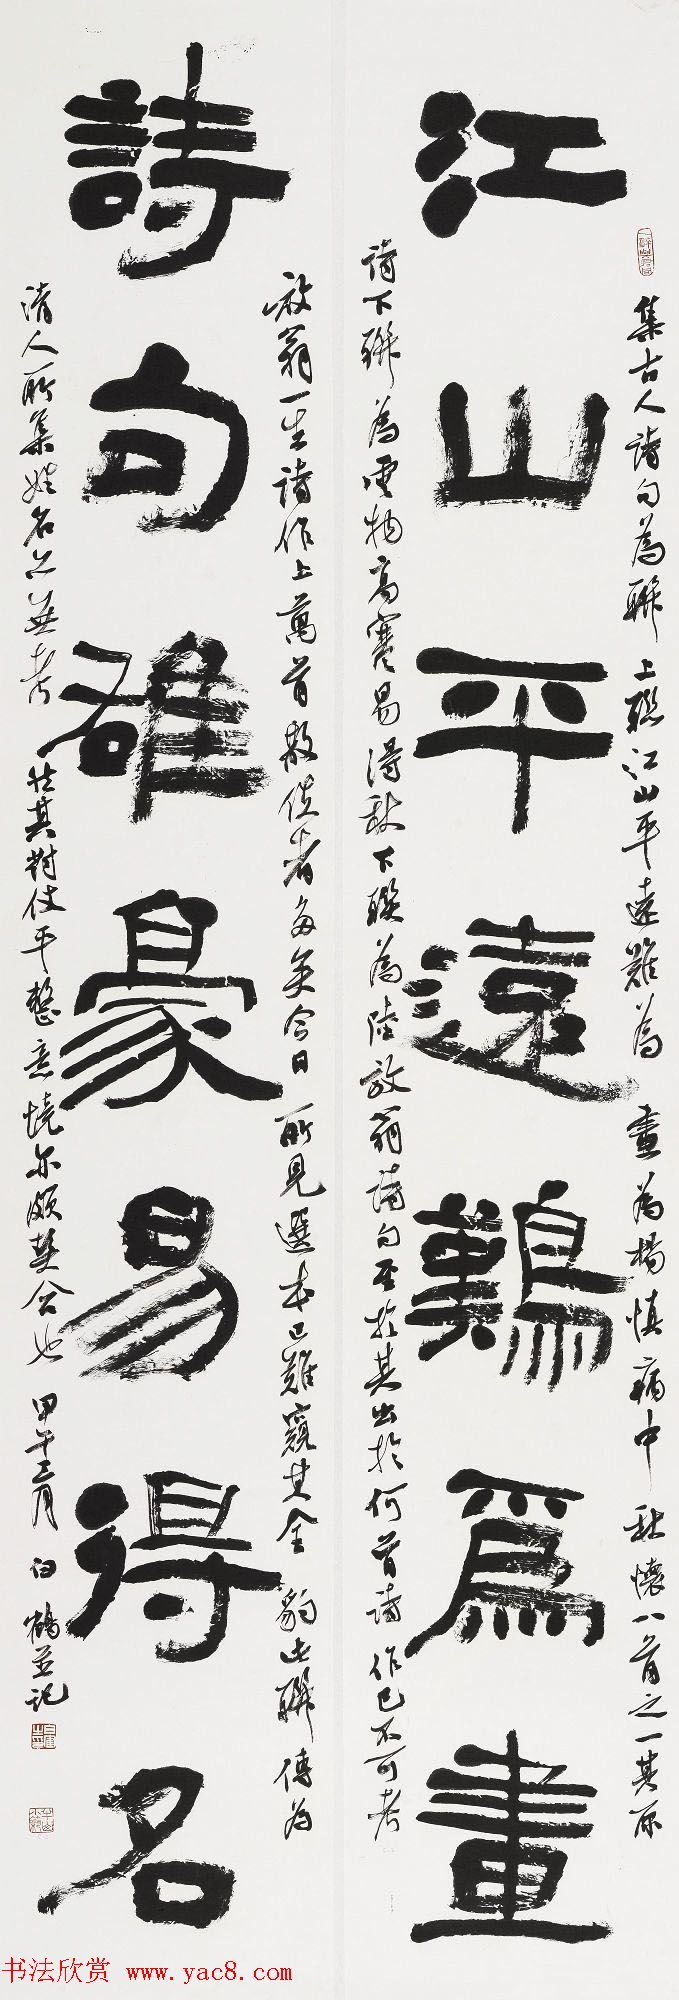 江山平遠難爲畫
集古人詩句為聯上聯江山平遠難為畫為楊慎病中秋懷八首之一其原
詩下聯為雲物高寒易得秋下聯為陸放翁詩句至於其出於何首詩作已不可考
詩句雄豪易得名
放翁一生詩作上萬首散佚者多矣今日所見選本已難窺其全豹此聯傳為
清人所集姓名亦無考其對仗平整意境亦頗契合也甲午三月白鶴並記
书法欣赏 www.yac8.com